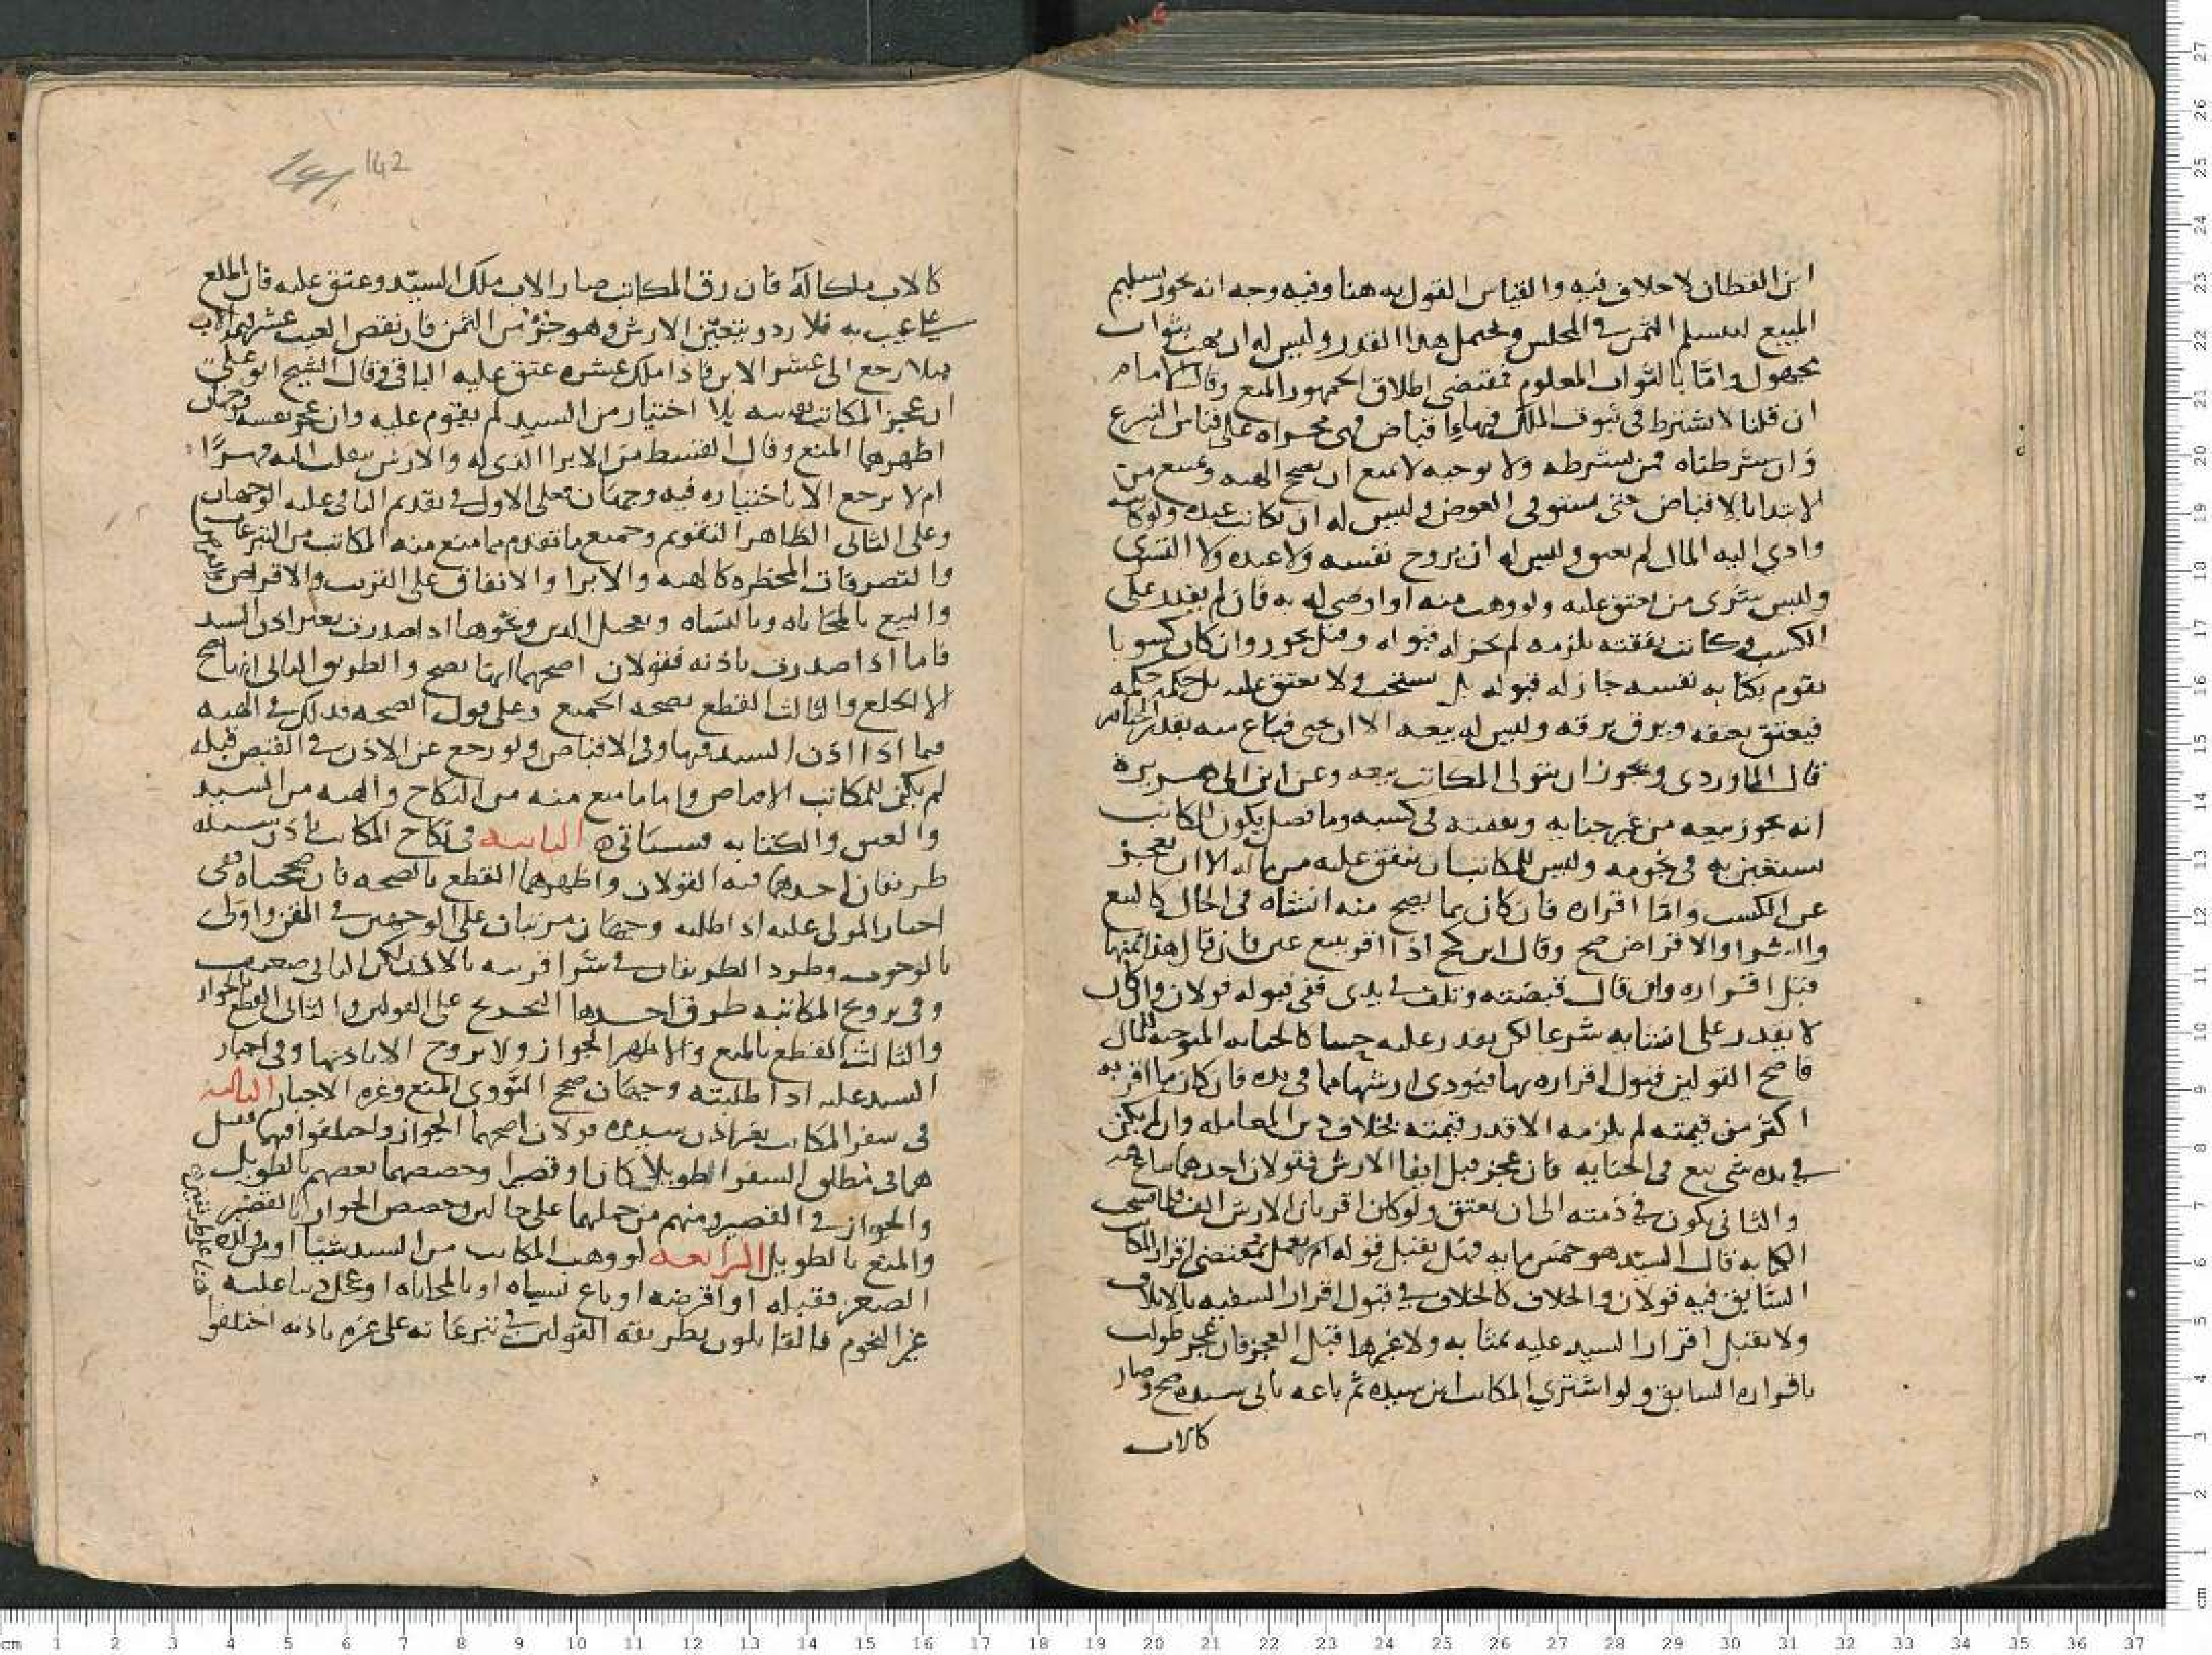 ابن القطان لا خلاف فيه والقياس القول به هنا وفيه وجه انه يجوز تسليم
المبيع لتسلم الثمن في المجلس ويحتمل هذا القدر وليس له ان يهب بثواب
مجهول واما بالثواب المعلوم فمقتضى اطلاق الجمهور المنع وقال الامام
ان قلنا لا يشترط في ثبوت الملك فيها اقباض فهي مجراه على قياس الشرع
وان شرطناه فمن يشرطه ولا يوجبه لا يمنع ان يصح الهبه ويمنع من
الابتدا بالاقباض حتى يستوفي العوض وليس له ان يكاتب عبده ولو كاتبه
وادي اليه المال لم يعتق وليس له ان يزوج نفسه ولا عبده ولا التسري
وليس يشتري من يعتق عليه ولو وهب منه او اوصي له به فان لم يقدر على
الكسب وكانت نفقته تلزمه لم يجز له قبوله وقيل يجوز وان كان كسوبا
يقوم بكفايه نفسه جاز له قبوله بل يستحب ولا يعتق عليه بل حكمه حكمه
فيعتق بعتقه ويرق برقه وليس له بيعه الا ان يجني فيباع منه بقدر الجنايه
قال الماوردي ويجوز ان يتولى المكاتب بيعه وعن ابن ابي هريرة
انه يجوز بيعه من غير جنايه ونفقته في كسبه وما فضل يكون للمكاتب
يستعين به في نجومه وليس للمكاتب ان ينفق عليه من ماله الا ان يعجز
عن الكسب واما اقراره فان كان بما يصح منه انشاه في الحال كالبيع
والشرا والاقتراض صح وقال ابن كج اذا اقر ببيع عين فان قال هذا ثمنها
قبل اقراره وان قال قبضته وتلف في يدي ففي قبوله قولان وان كان
لا يقدر على انشايه شرعا لكن يقدر عليه حسا كالجنايه الموجبه للمال
فاصح القولين قبول اقراره بها فيودي ارشها مما في يده فان كان ما اقر به
اكثر من قيمته لم يلزمه الا قدر قيمته بخلاف دين المعامله وان لم يكن
في يده شي بيع في الجنايه فان عجز قبل ايفا الارش فقولان احدهما يباع فيه
والثاني يكون في ذمته الى ان يعتق ولو كان اقر بان الارش الف
الكتابه قال السيد هو خمس مايه فهل يقبل قوله ام يعمل بمقتضى اقرار المكاتب
السابق فيه قولان والخلاف كالخلاف في قبول اقرار السفيه بالاتلاف
ولا يقبل اقرار السيد عليه بجنايه ولا غيرها قبل العجز فان عجز طولب
باقراره السابق ولو اشترى المكاتب ابن سيده ثم باعه بابي سيده صح وصار
كالاب
142
كالاب ملكا له فان رق المكاتب صار الاب ملك السيد وعتق عليه فان اطلع
على عيب به فلا رد ويتعين الارش وهو جزء من الثمن فان نقص العيب عشر قيمة الاب
مثلا رجع الى عشر الابن فاذا ملك عشره عتق عليه الباقي وقال الشيخ ابو علي
ان عجز المكاتب نفسه بلا اختيار من السيد لم يقوم عليه وان عجز بنفسه وجهان
اظهرهما المنع وقال القسط من الابرا الذي له والارش ينقلب اليه قهرا
ام لا يرجع الا باختياره فيه وجهان فعلى الاول في تقديم الباقي عليه الوجهان
وعلى الثاني الظاهر التقويم وجميع ما تقدم مما منع منه المكاتب من التبرعات
والتصرفات المخطره كالهبه والابرا والانفاق على القريب والاقراض
والبيع بالمحاباه وبالنساه وتعجيل الدين ونحوها اذا صدرت بغير اذن السيد
فاما اذا صدرت باذنه فقولان اصحهما انها تصح والطريق الثاني انها تصح
الا الخلع والثالث القطع بصحه الجميع وعلى قول الصحه فذلك في الهبه
فيما اذا اذن السيد فيها وفي الاقباض ولو رجع عن الاذن في القبض قبله
لم يكن للمكاتب الاقباض واما ما منع منه من النكاح والهبه من السيد
والعتق والكتابه فسياتي الثانيه في نكاح المكاتب باذن سيده
طريقان احدهما فيه القولان واظهرهما القطع بالصحه فان صححناه ففي
اجبار المولى عليه اذا طلبه وجهان مرتبان على الوجهين في القن واولى
بالوجوب وطرد الطريقان في شرا قريبه بالاذن لكن الثاني ضعيف
وفي تزويج المكاتبه طرق احدها التخريج على القولين والثاني القطع بالجواز
والثالث القطع بالمنع والاظهر الجواز ولا يزوج الا باذنها وفي اجبار
السيد عليه اذا طلبته وجهان صحح النووي المنع وغيره الاجبار الثالثه
في سفر المكاتب بغير اذن سيده قولان اصحهما الجواز واختلفوا فيهما فقيل
هما في مطلق السفر طويلا كان او قصيرا وخصصهما بعضهم بالطويل
والجواز في القصير ومنهم من حملهما على حالين وخصص الجواز بالقصير
والمنع بالطويل الرابعه لو وهب المكاتب من السيد شيئا او من ولده
الصغير فقبله او اقرضه او باع نسياه او بالمحاباه او عجل دينا عليه
غير النجوم فالقايلون بطريقه القولين في تبرعاته على غيره باذنه اختلفوا